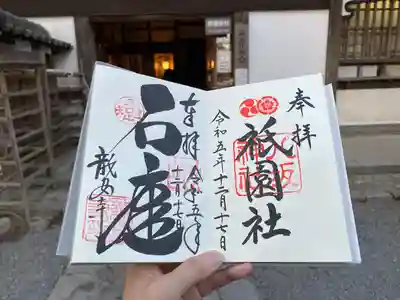 奉拝
祇園社
令和五年十二月十七日
奉拝
令和五年
十二月十七日
石庭
龍安寺